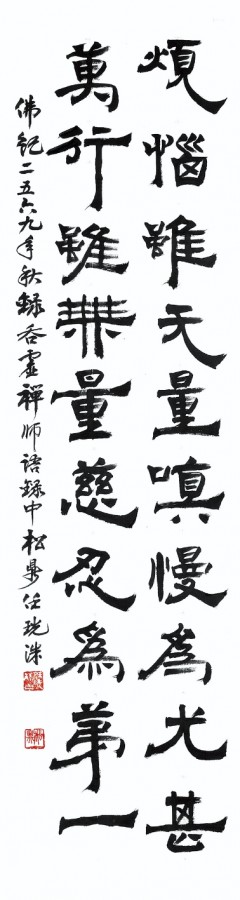 煩惱雖无量嗔慢為尤甚
萬行雖無量慈忍為第一
佛紀二五六九年秋錄呑虛禪師語錄中松泉任珖洙